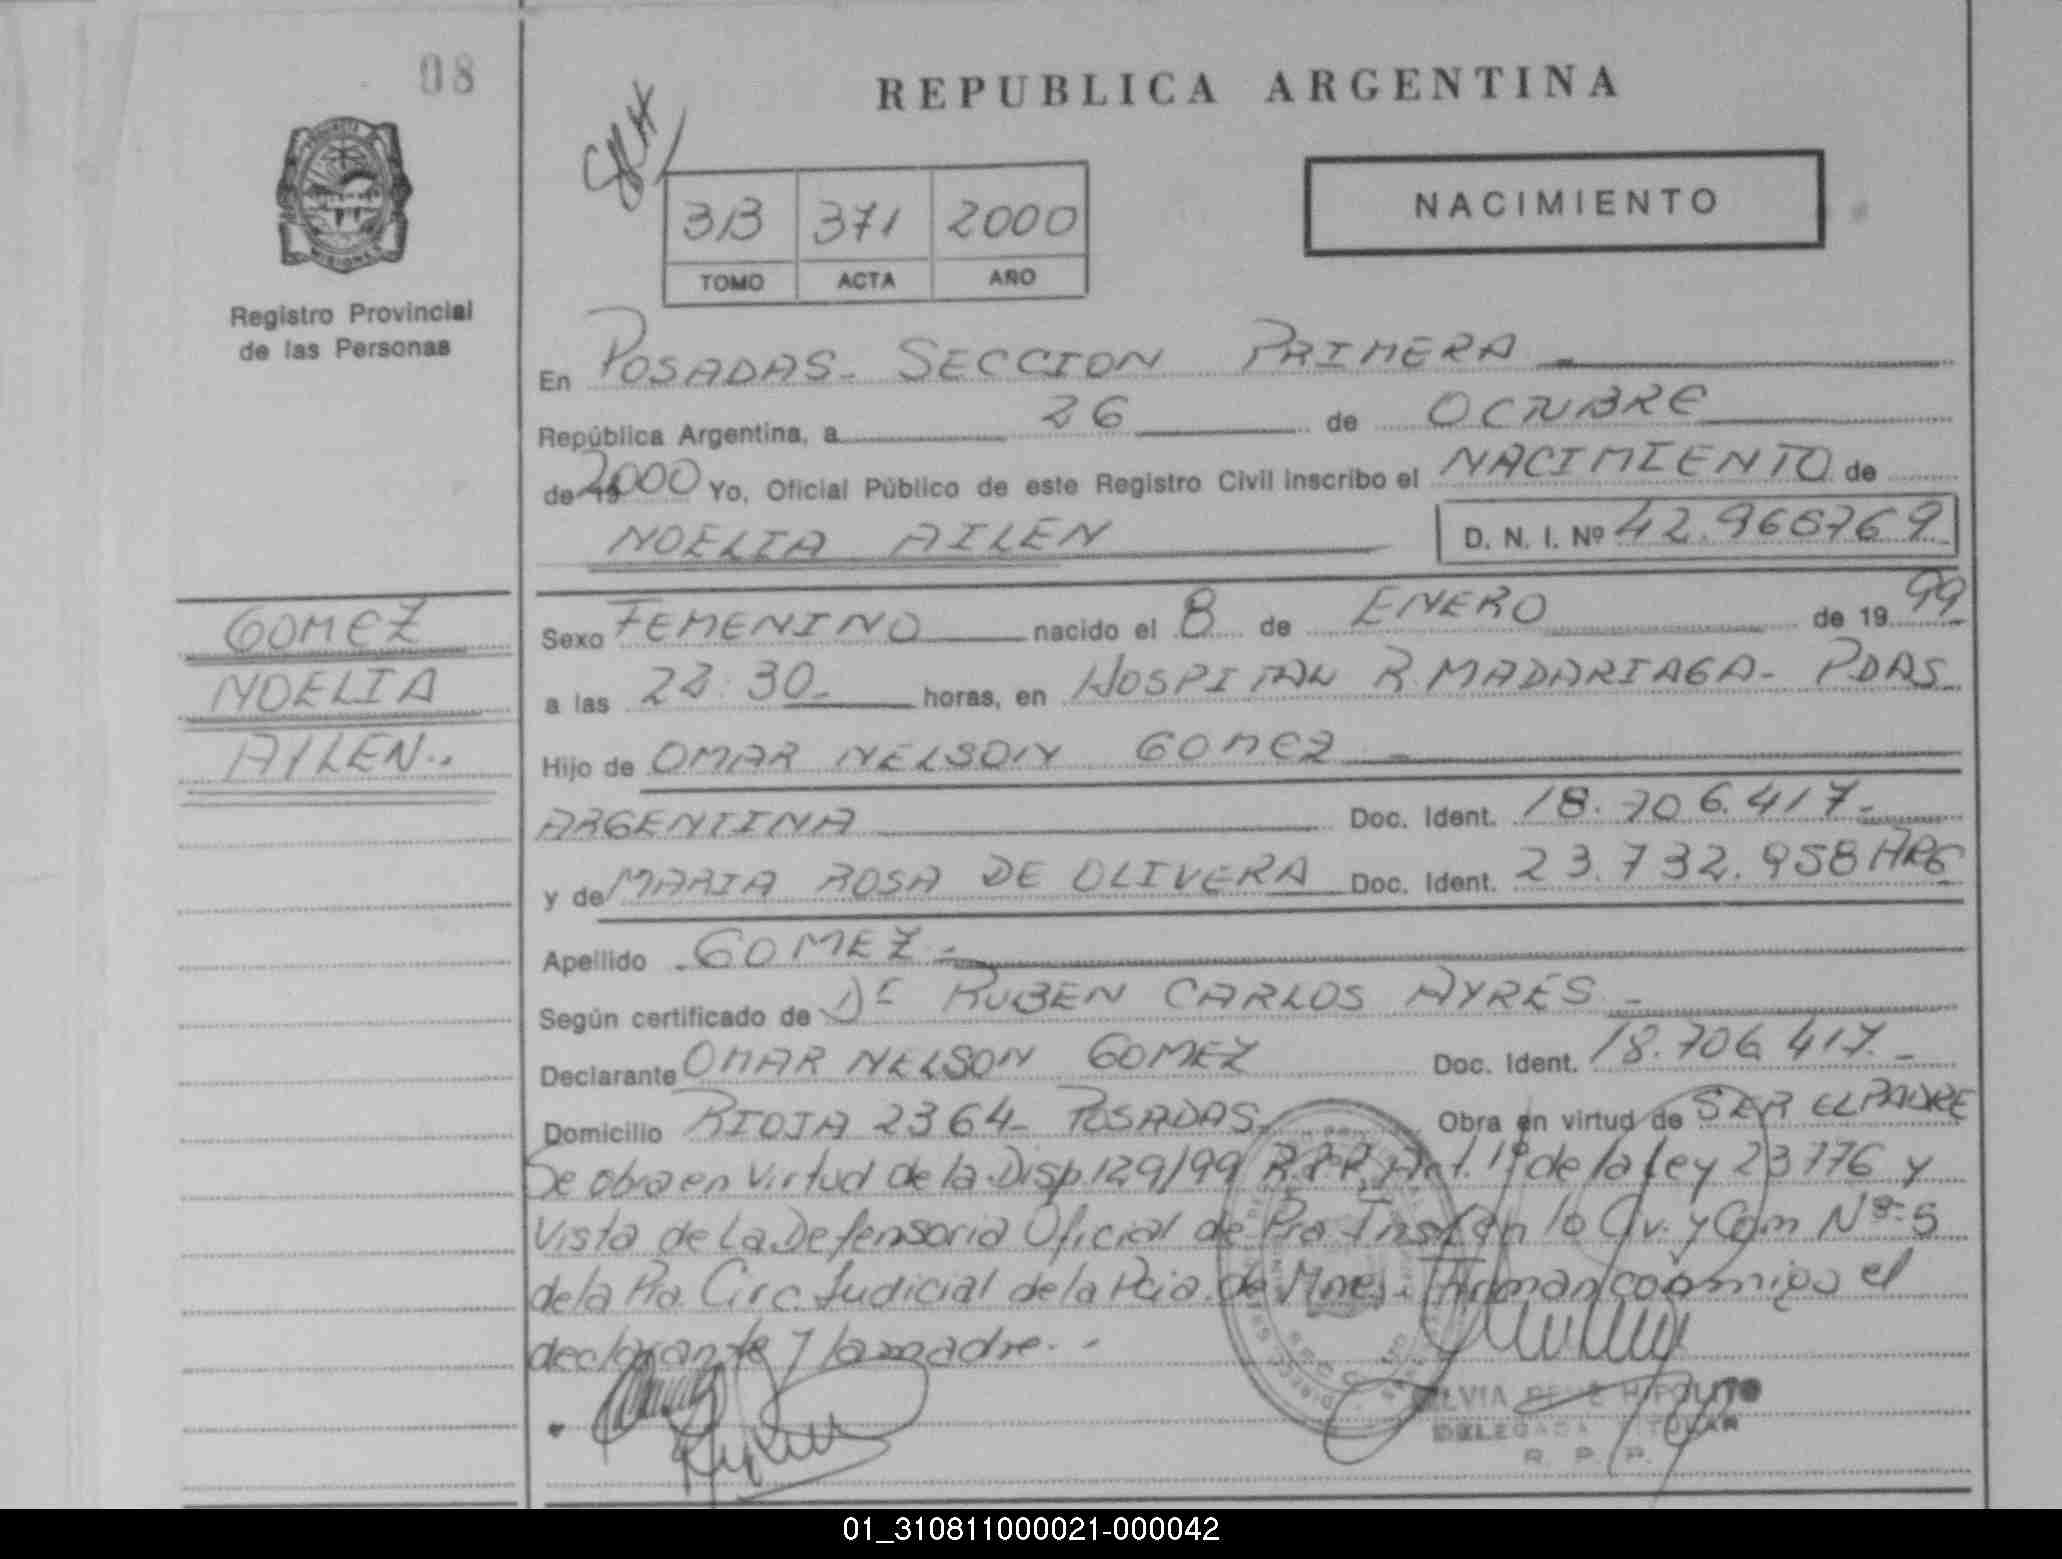 08
REPUBLICA ARGENTINA
NACIMIENTO
3B 371 2000
TOMO ACTA AÑO
Registro Provincial
de las Personas
En POSADAS - SECCION PRIMERA -
República Argentina, a 26 de OCTUBRE
de 2000 Yo, Oficial Público de este Registro Civil inscribo el NACIMIENTO de
NOELIA AILEN D. N. I. Nº
GOMEZ
NOELIA
AILEN..
Sexo FEMENINO nacido el 8 de ENERO de 1999
a las horas, en HOSPITAL R. MADARIAGA - PDAS
Hijo de OMAR NELSON GOMEZ -
ARGENTINA Doc. Ident. 18.706.417-
y de MARIA ROSA DE OLIVERA Doc. Ident. 23.732.958 ARG
Apellido GOMEZ -
Según certificado de Dr RUBEN CARLOS AYRES -
Declarante OMAR NELSON GOMEZ Doc. Ident. 18.706.417. -
Domicilio RIOJA 2364 - POSADAS - Obra en virtud de SER EL PADRE
Se obra en Virtud de la Disp. 129/99 R.P.P, Art. 1º de la Ley 23776 y
Vista de La Defensoria Oficial de Pra Inst. en lo Civ. y Com Nº 5
de la Pra. Circ. Judicial de la Pcia. de Mnes. Firman conmigo el
declarante y la madre. -
DELEGADA TITULAR
R. P. P.
01_310811000021-000042